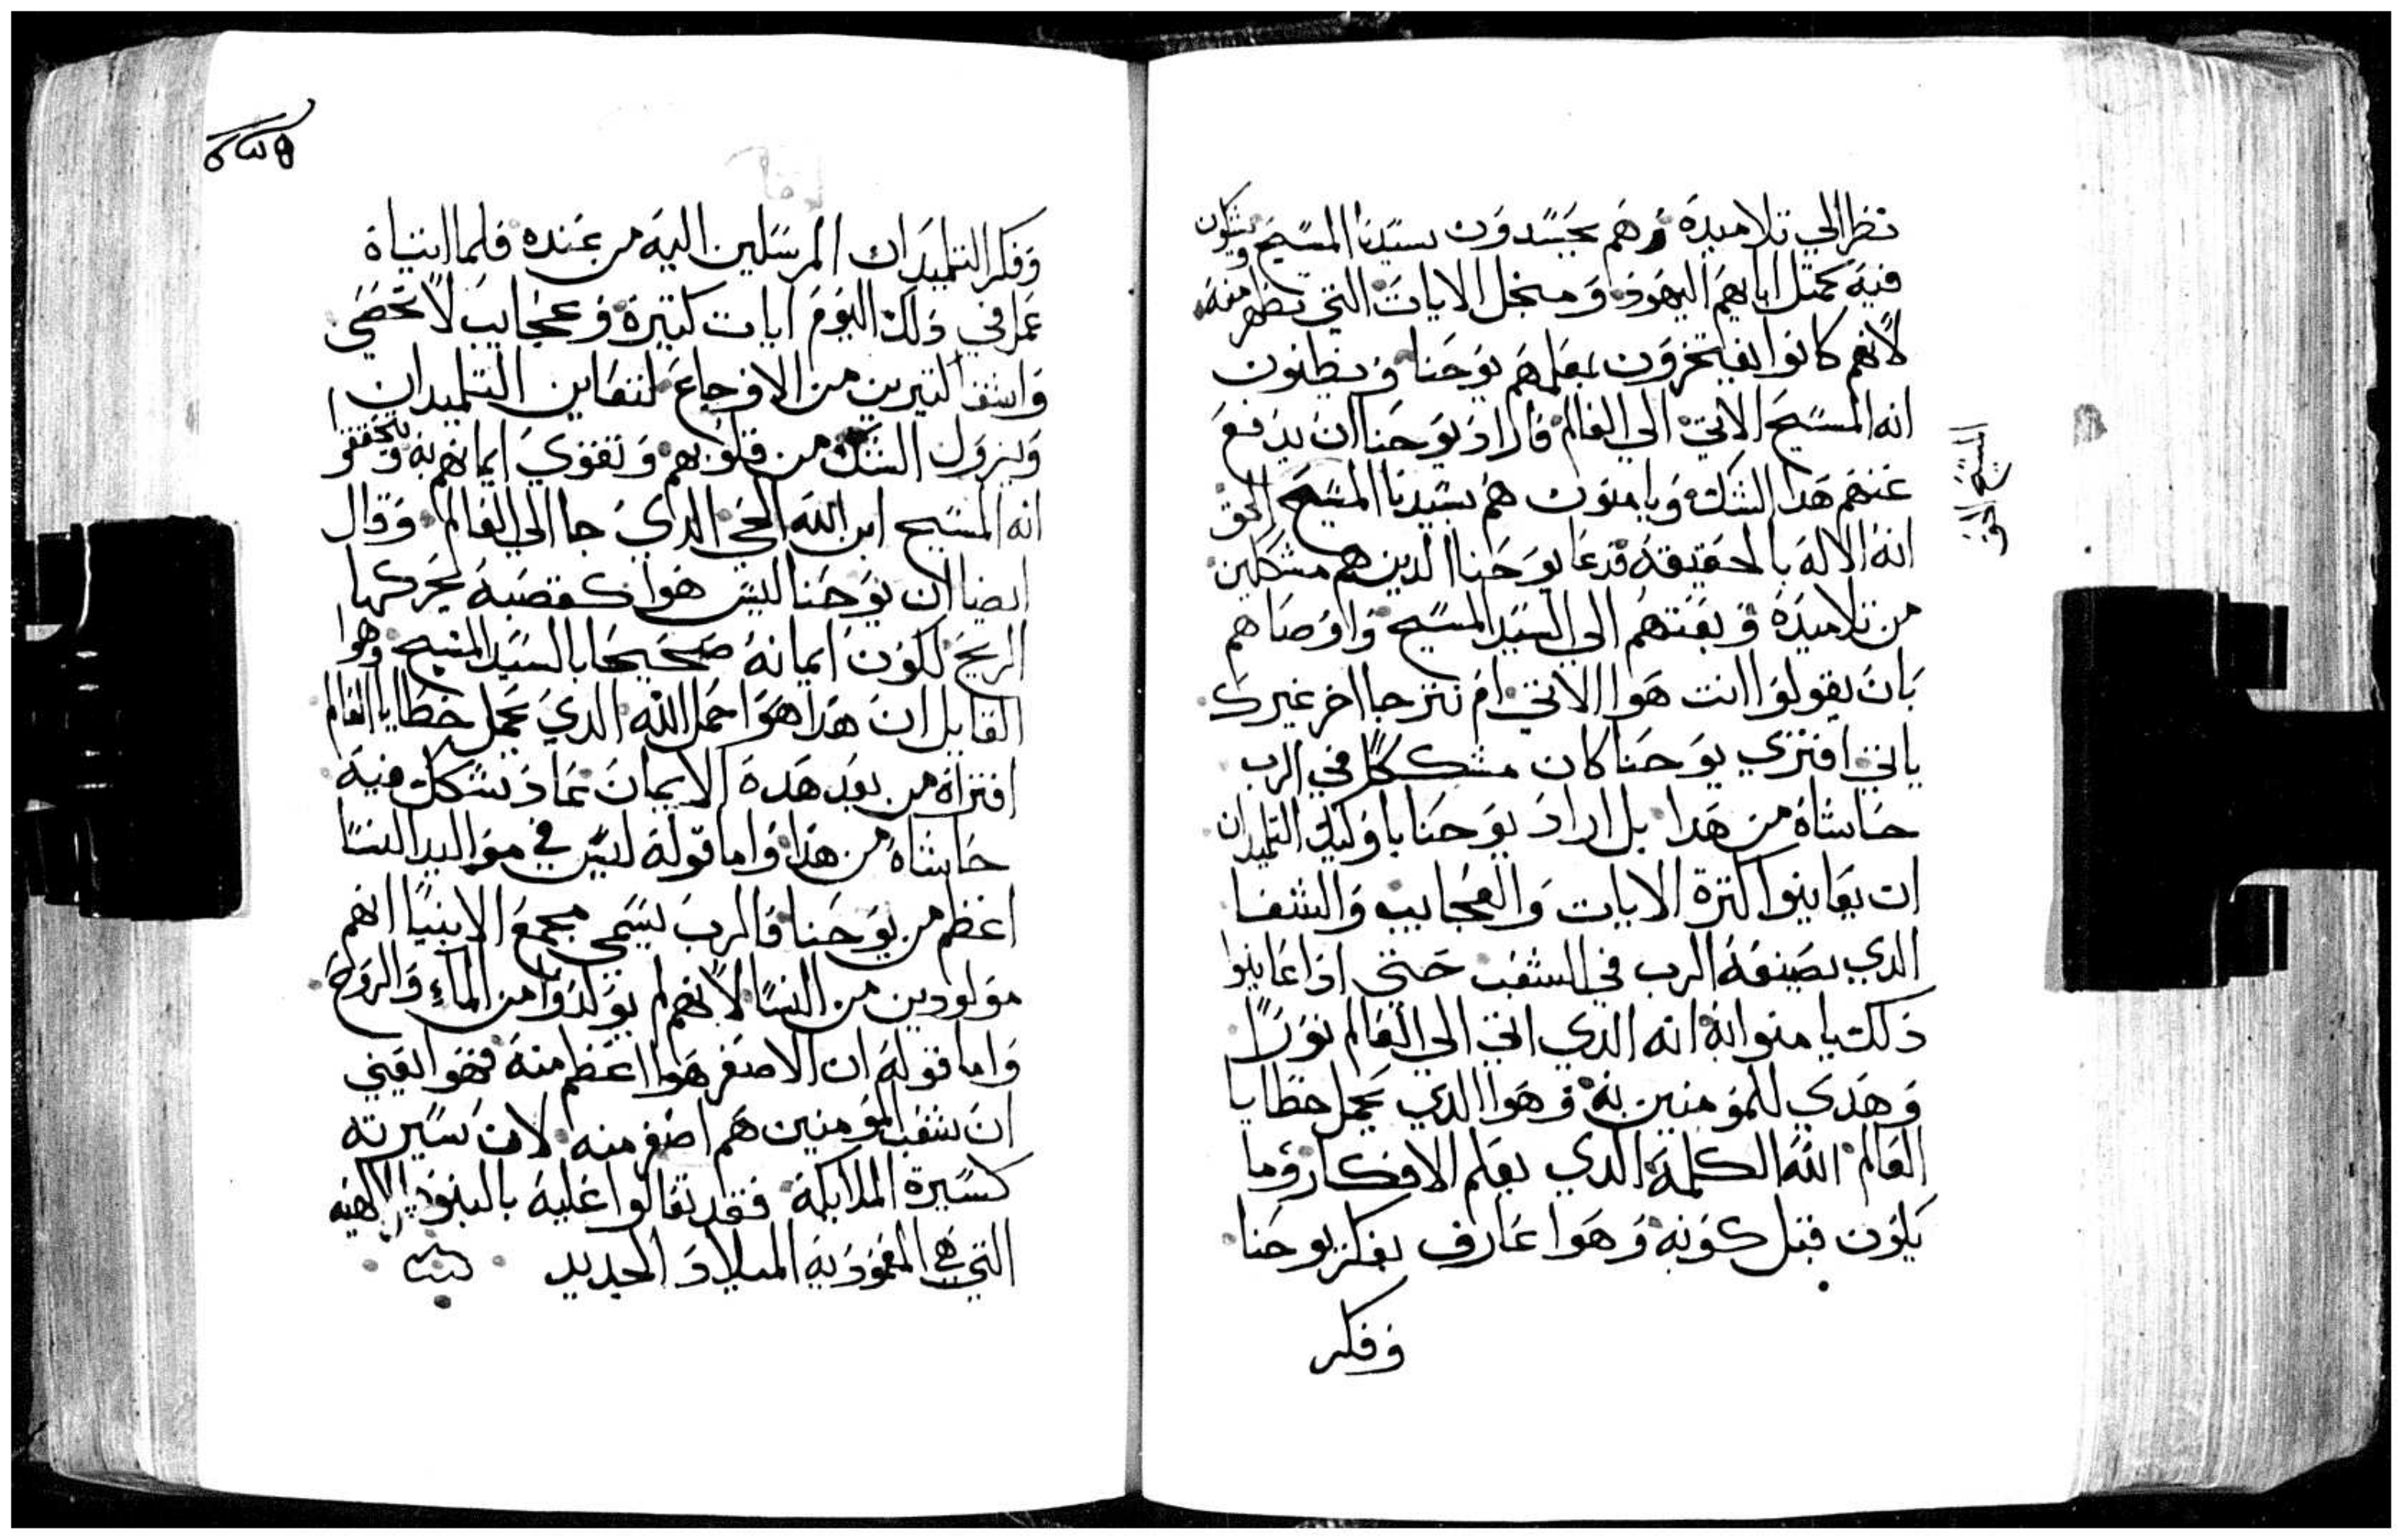 نظر الي تلاميده وهم يحسدون سيدنا المسيح ويشكون
فيه كمتل ابايهم اليهود ومنجل الايات التي تظهر منه
لانهم كانوا يفتخرون بمعلمهم يوحنا ويظنون
انه المسيح الاتي الي العالم فاراد يوحنا ان يدفع
عنهم هدا الشك ويامنون هم بسيدنا المسيح الحق
المسيح الحق
انه الاله بالحقيقه فدعا يوحنا الدين هم مشككين
من تلاميده وبعتهم الي السيد المسيح واوصاهم
بان يقولوا انت هوا الاتي ام نترجا اخر غيرك
ياتي افتري يوحنا كان مشككا في الرب
حاشاه من هدا بل اراد يوحنا باوليك التلميدان
ان يعاينوا كترة الايات والعجايب والشفا
الدي يصنعه الرب في الشعب حتي ادا عاينوا
دلك يامنوا به انه الدي اتي الي العالم نورا
وهدي للمومنين به وهوا الدي يحمل خطايا
العالم الله الكلمة الدي يعلم الافكار وما
يكون قبل كونه وهوا عارف بفكر يوحنا
وفكر
وفكر التلميدان المرسلين اليه من عنده فلما اتياه
عمل في دلك اليوم ايات كتيرة وعجايب لا تحصي
واشفا كتيرين من الاوجاع لتعاين التلميدان
ويزول الشك من قلوبهم وتقوي ايمانهم به ويتحققوا
انه المسيح ابن الله الحي الدي جا الي العالم وقال
ايضا ان يوحنا ليس هوا كقصبة يحركها
الريح لكون ايمانه صحيحا بالسيد المسيح وهوا
القايل ان هدا هوا حمل الله الدي يحمل خطايا العالم
افتراه من بعد هده الايمان عاد تشكك فيه
حاشاه من هدا واما قوله ليس في مواليد النسا
اعظم من يوحنا فالرب يسمي مجمع الانبيا انهم
مولودين من النسا لانهم لم يولدوا من الماء والروح
واما قوله ان الاصغر هوا اعظم منه فهوا يعني
ان شعب المومنين هم اصغر منه لان سيرته
كسيرة الملايكة فقد تعالوا عليه بالبنوه الالهيه
التي هي المعموديه الميلاد الجديد